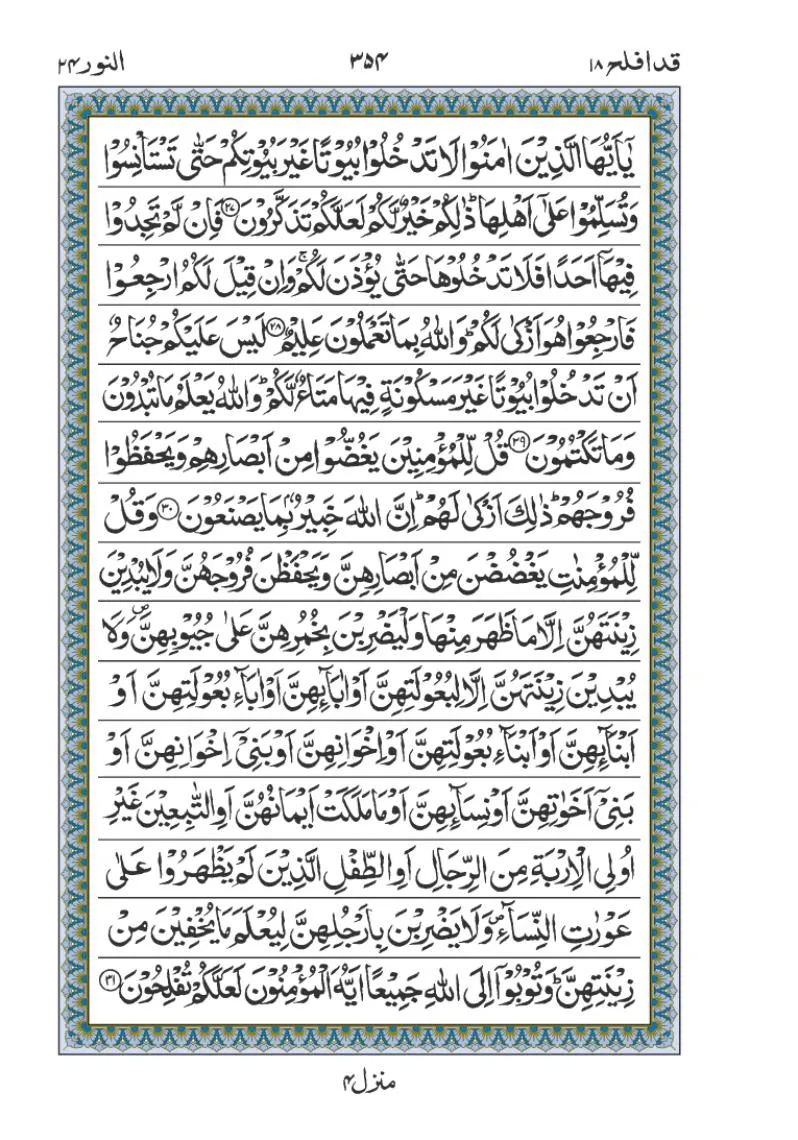 قد افلح ۱۸ ۳۵۴ النور ۲۴
يٰۤاَيُّهَا الَّذِيْنَ اٰمَنُوْا لَا تَدْخُلُوْا بُيُوْتًا غَيْرَ بُيُوْتِكُمْ حَتّٰى تَسْتَاْنِسُوْا
وَتُسَلِّمُوْا عَلٰٓى اَهْلِهَا ؕ ذٰلِكُمْ خَيْرٌ لَّكُمْ لَعَلَّكُمْ تَذَكَّرُوْنَ ﴿۲۷﴾ فَاِنْ لَّمْ تَجِدُوْا
فِيْهَاۤ اَحَدًا فَلَا تَدْخُلُوْهَا حَتّٰى يُؤْذَنَ لَكُمْ ۚ وَاِنْ قِيْلَ لَكُمُ ارْجِعُوْا
فَارْجِعُوْا هُوَ اَزْكٰى لَكُمْ ؕ وَاللّٰهُ بِمَا تَعْمَلُوْنَ عَلِيْمٌ ﴿۲۸﴾ لَيْسَ عَلَيْكُمْ جُنَاحٌ
اَنْ تَدْخُلُوْا بُيُوْتًا غَيْرَ مَسْكُوْنَةٍ فِيْهَا مَتَاعٌ لَّكُمْ ؕ وَاللّٰهُ يَعْلَمُ مَا تُبْدُوْنَ
وَمَا تَكْتُمُوْنَ ﴿۲۹﴾ قُلْ لِّلْمُؤْمِنِيْنَ يَغُضُّوْا مِنْ اَبْصَارِهِمْ وَيَحْفَظُوْا
فُرُوْجَهُمْ ؕ ذٰلِكَ اَزْكٰى لَهُمْ ؕ اِنَّ اللّٰهَ خَبِيْرٌۢ بِمَا يَصْنَعُوْنَ ﴿۳۰﴾ وَقُلْ
لِّلْمُؤْمِنٰتِ يَغْضُضْنَ مِنْ اَبْصَارِهِنَّ وَيَحْفَظْنَ فُرُوْجَهُنَّ وَلَا يُبْدِيْنَ
زِيْنَتَهُنَّ اِلَّا مَا ظَهَرَ مِنْهَا وَلْيَضْرِبْنَ بِخُمُرِهِنَّ عَلٰى جُيُوْبِهِنَّ ۪ وَلَا
يُبْدِيْنَ زِيْنَتَهُنَّ اِلَّا لِبُعُوْلَتِهِنَّ اَوْ اٰبَآئِهِنَّ اَوْ اٰبَآءِ بُعُوْلَتِهِنَّ اَوْ
اَبْنَآئِهِنَّ اَوْ اَبْنَآءِ بُعُوْلَتِهِنَّ اَوْ اِخْوَانِهِنَّ اَوْ بَنِيْۤ اِخْوَانِهِنَّ اَوْ
بَنِيْۤ اَخَوٰتِهِنَّ اَوْ نِسَآئِهِنَّ اَوْ مَا مَلَكَتْ اَيْمَانُهُنَّ اَوِ التّٰبِعِيْنَ غَيْرِ
اُولِي الْاِرْبَةِ مِنَ الرِّجَالِ اَوِ الطِّفْلِ الَّذِيْنَ لَمْ يَظْهَرُوْا عَلٰى
عَوْرٰتِ النِّسَآءِ ۪ وَلَا يَضْرِبْنَ بِاَرْجُلِهِنَّ لِيُعْلَمَ مَا يُخْفِيْنَ مِنْ
زِيْنَتِهِنَّ ؕ وَتُوْبُوْۤا اِلَى اللّٰهِ جَمِيْعًا اَيُّهَ الْمُؤْمِنُوْنَ لَعَلَّكُمْ تُفْلِحُوْنَ ﴿۳۱﴾
منزل ۴